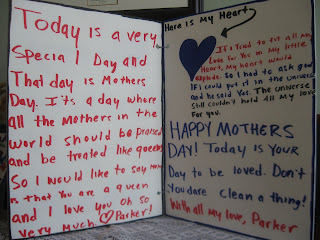 Today is a very
Special Day and
That day is Mothers
Day. It's a day where
all the Mothers in the
world should be praised
and be treated like queens
So I would like to say mom
is that You are a queen
and I love you oh so
very much. Parker!
Here is My Heart
It's Tried to fit all my
Love for You in My little
Heart, My heart would
explode. So I had to ask god
If I could put it in the Universe
and he said Yes. The Universe
Still couldn't hold all my love
For you.
HAPPY MOTHERS
DAY! Today is your
Day to be loved. Don't
You dare clean a thing!
With all my love, Parker